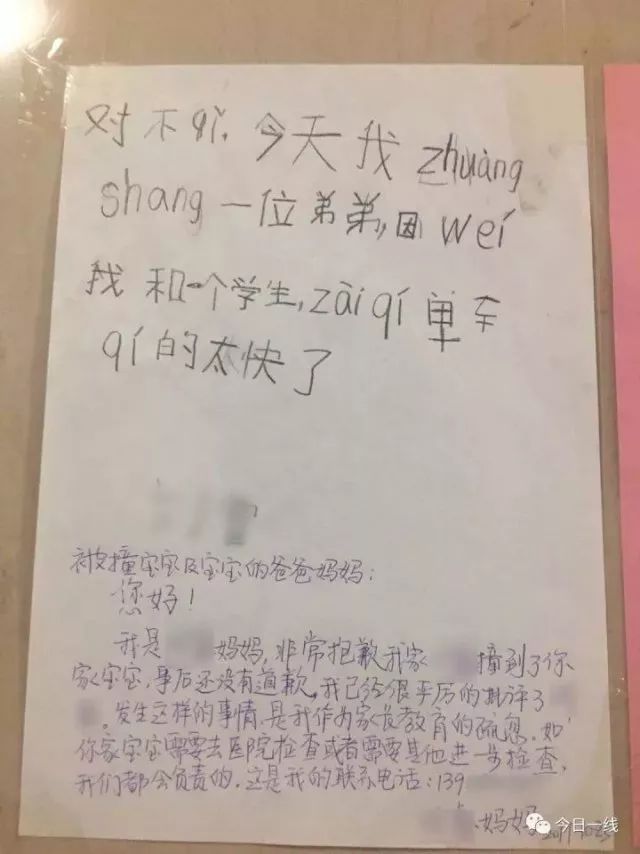 对不qǐ,今天我zhuàng
shang一位弟弟,因wéi
我和一个学生,zài qí单车
qí的太快了
被撞宝宝及宝宝的爸爸妈妈:
您好!
我是 妈妈,非常抱歉我家 撞到了你
家宝宝,事后还没有道歉。我已经很严厉的批评了
。发生这样的事情,是我作为家长教育的疏忽.如
你家宝宝需要去医院检查或者需要其他进一步检查,
我们都会负责的.这是我的联系电话:139
妈妈
今日一线